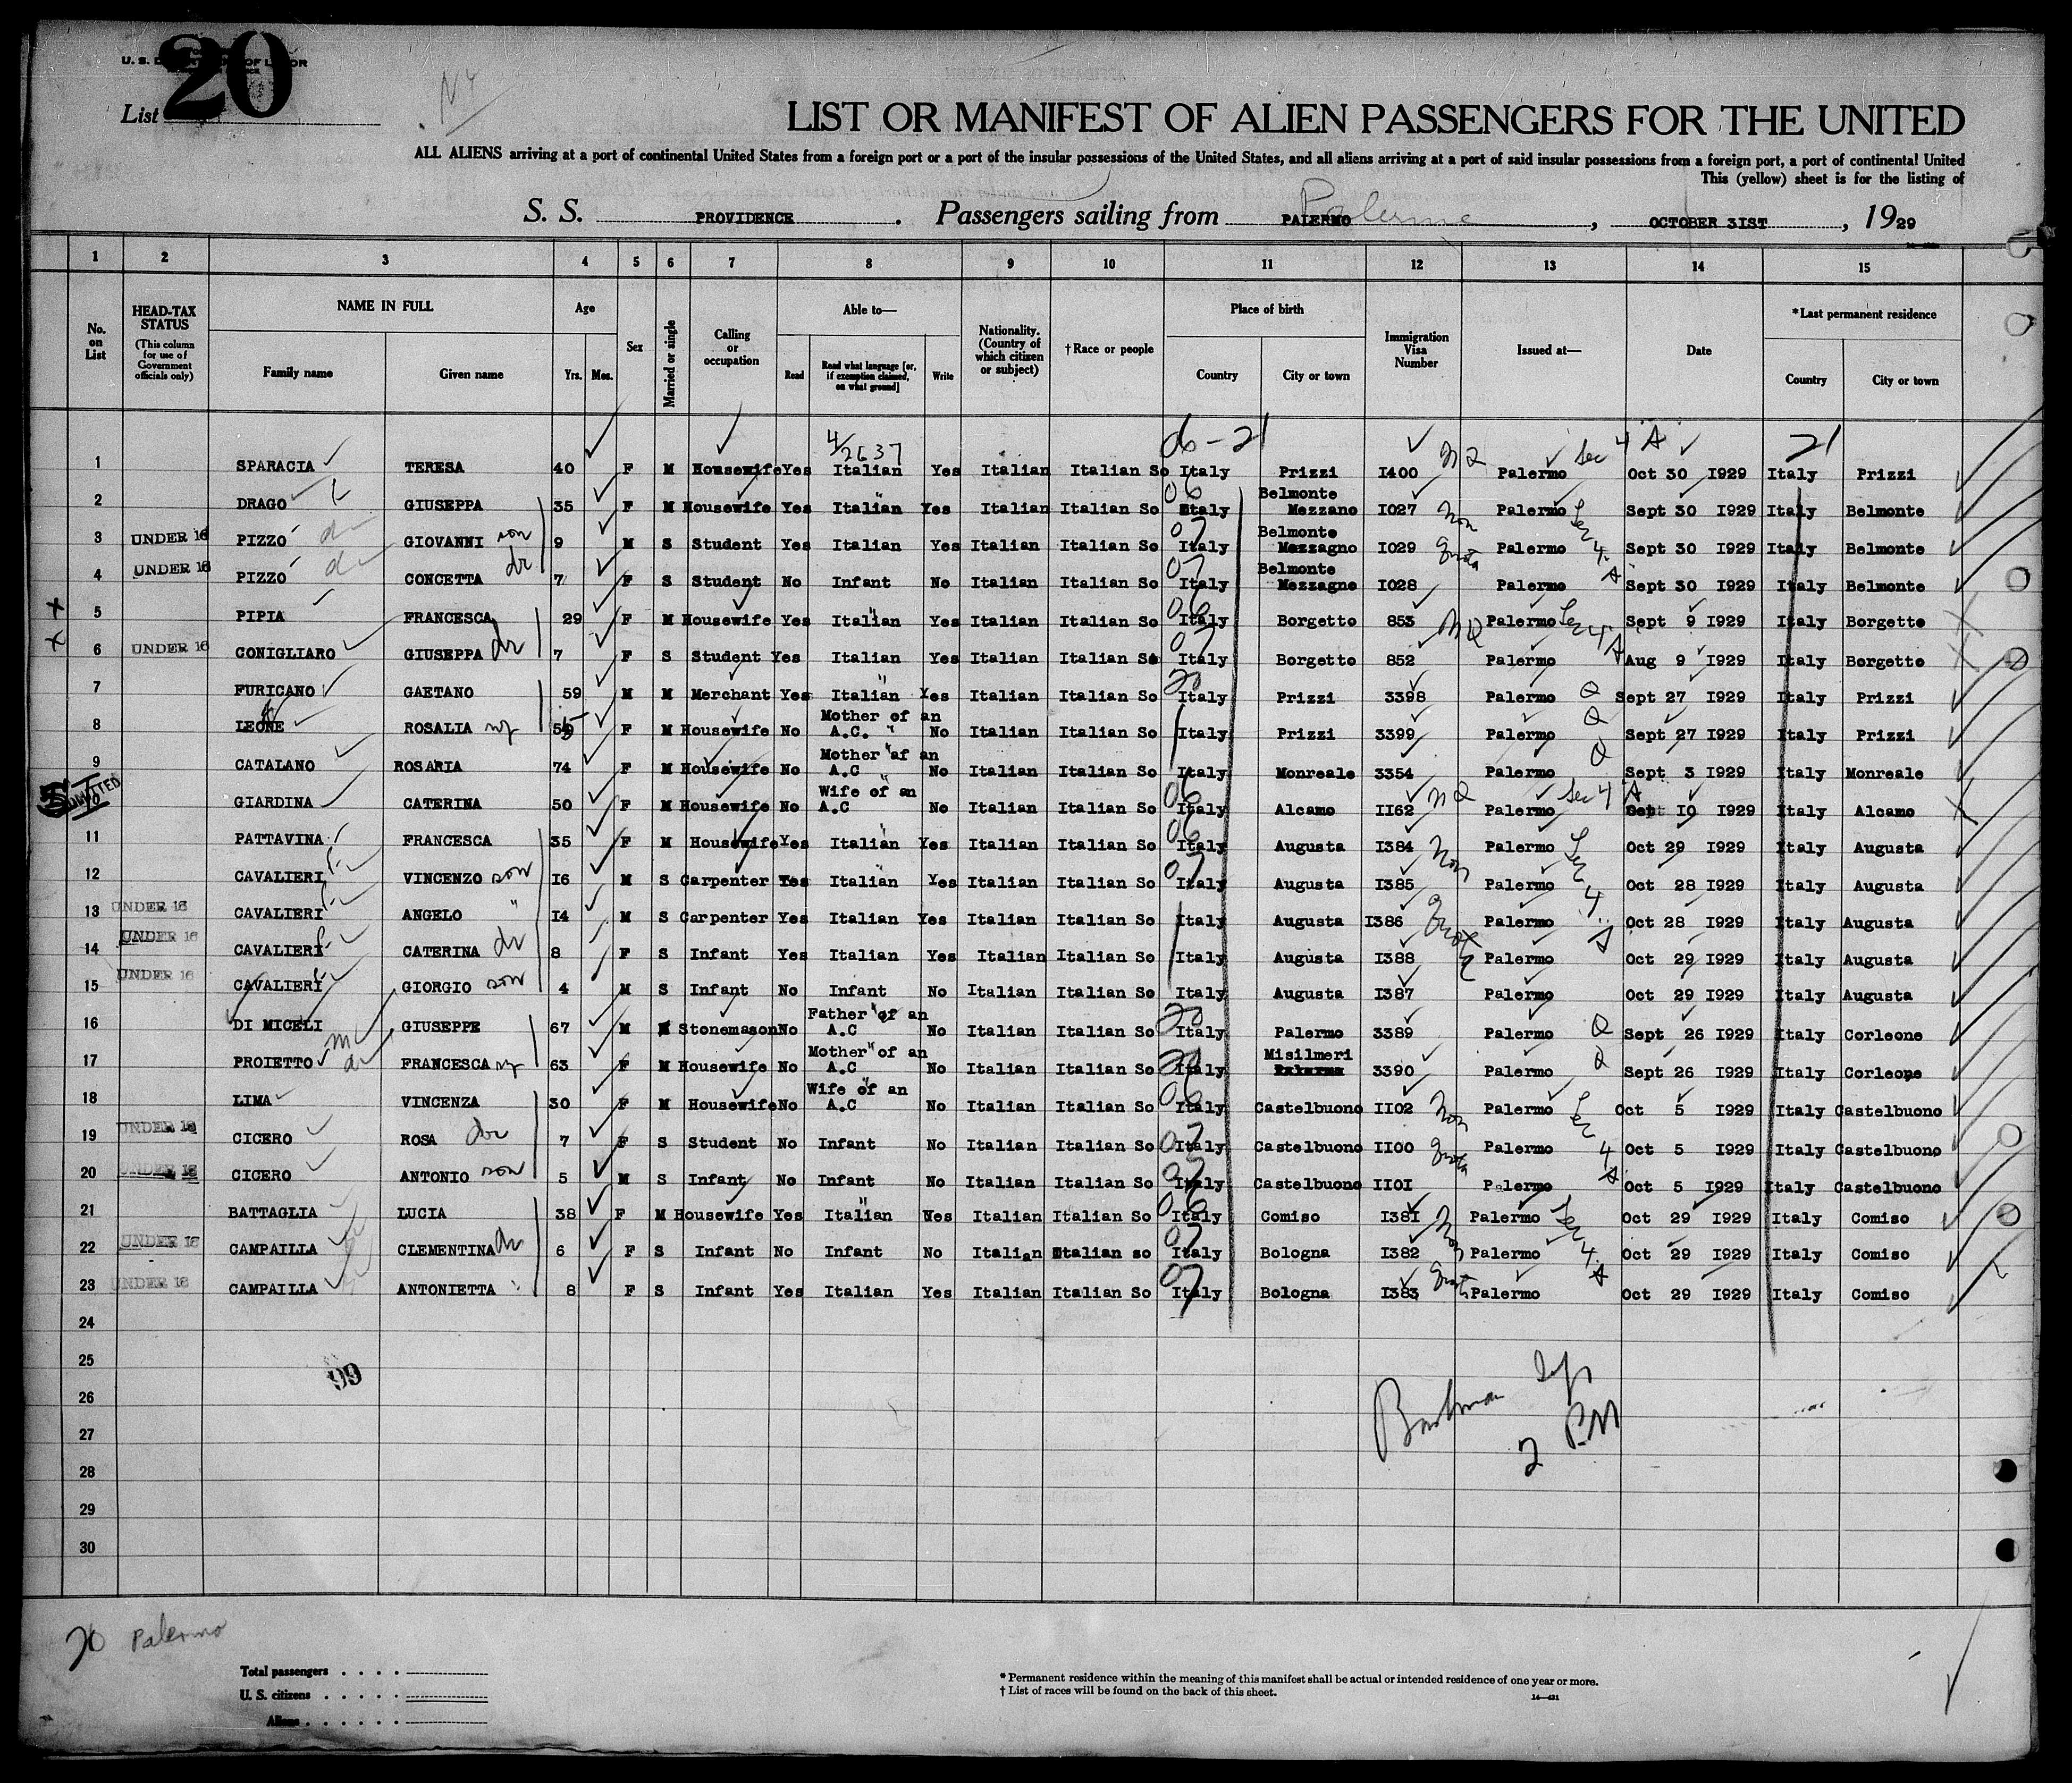 U. S. D OF L OR
List 20
NY
LIST OR MANIFEST OF ALIEN PASSENGERS FOR THE UNITED
ALL ALIENS arriving at a port of continental United States from a foreign port or a port of the insular possessions of the United States, and all aliens arriving at a port of said insular possessions from a foreign port, a port of continental United
This (yellow) sheet is for the listing of
S. S. PROVIDENCE . Passengers sailing from PALERMO Palermo , OCTOBER 31ST , 1929
1 2 3 4 5 6 7 8 9 10 11 12 13 14 15
No. on List HEAD-TAX STATUS (This column for use of Government officials only) NAME IN FULL Family name Given name Age Yrs. Mos. Sex Married or single Calling or occupation Able to— Read Read what language [or, if exemption claimed, on what ground] Write Nationality. (Country of which citizen or subject) †Race or people Place of birth Country City or town Immigration Visa Number Issued at— Date *Last permanent residence Country City or town
1 SPARACIA TERESA 40 F M Housewife Yes 4/2637 Italian Yes Italian Italian So 06-21 Italy Prizzi I400 NQ Palermo Sec 4 A Oct 30 I929 21 Italy Prizzi
2 DRAGO GIUSEPPA 35 F M Housewife Yes Italian Yes Italian Italian So 06 Italy Belmonte Mezzano I027 Non Palermo Sec Sept 30 I929 Italy Belmonte
3 UNDER 16 PIZZO GIOVANNI son 9 M S Student Yes Italian Yes Italian Italian So 07 Italy Belmonte Mezzagno I029 Quota Palermo 4 Sept 30 I929 Italy Belmonte
4 UNDER 16 PIZZO CONCETTA dr 7 F S Student No Infant No Italian Italian So 07 Italy Belmonte Mezzagne I028 Palermo A Sept 30 I929 Italy Belmonte
X 5 PIPIA FRANCESCA 29 F M Housewife Yes Italian Yes Italian Italian So 06 Italy Borgetto 853 NQ Palermo Sec 4 A Sept 9 I929 Italy Borgetto X
X 6 UNDER 16 CONIGLIARO GIUSEPPA dr 7 F S Student Yes Italian Yes Italian Italian So 07 Italy Borgetto 852 Palermo Aug 9 I929 Italy Borgetto X
7 FURICANO GAETANO 59 M M Merchant Yes Italian Yes Italian Italian So 20 Italy Prizzi 3398 Palermo Q Sept 27 I929 Italy Prizzi
8 LEONE ROSALIA wf 55 F M Housewife No Mother of an A.C. No Italian Italian So Italy Prizzi 3399 Palermo Q Sept 27 I929 Italy Prizzi
9 CATALANO ROSARIA 74 F M Housewife No Mother af an A.C No Italian Italian So Italy Monreale 3354 Palermo Q Sept 3 I929 Italy Monreale
ADMITTED GIARDINA CATERINA 50 F M Housewife No Wife of an A.C No Italian Italian So 06 Italy Alcamo II62 NQ Palermo Sec 4 A Oct I0 I929 Italy Alcamo X
11 PATTAVINA FRANCESCA 35 F M Housewife Yes Italian Yes Italian Italian So 06 Italy Augusta I384 Non Palermo Sec Oct 29 I929 Italy Augusta
12 CAVALIERI VINCENZO son I6 M S Carpenter Yes Italian Yes Italian Italian So 07 Italy Augusta I385 Palermo Oct 28 I929 Italy Augusta
13 UNDER 16 CAVALIERI ANGELO " I4 M S Carpenter Yes Italian Yes Italian Italian So Italy Augusta I386 Quota Palermo 4 Oct 28 I929 Italy Augusta
14 UNDER 16 CAVALIERI CATERINA dr 8 F S Infant Yes Italian Yes Italian Italian So Italy Augusta I388 Palermo A Oct 29 I929 Italy Augusta
15 UNDER 16 CAVALIERI GIORGIO son 4 M S Infant No Infant No Italian Italian So Italy Augusta I387 Palermo Oct 29 I929 Italy Augusta
16 DI MICELI GIUSEPPE 67 M M Stonemason No Father of an A.C No Italian Italian So 20 Italy Palermo 3389 Palermo Q Sept 26 I929 Italy Corleone
17 PROIETTO FRANCESCA wf 63 F M Housewife No Mother of an A.C No Italian Italian So Italy Misilmeri 3390 Palermo Q Sept 26 I929 Italy Corleone
18 LIMA VINCENZA 30 F M Housewife No Wife of an A.C No Italian Italian So 06 Italy Castelbuono II02 Non Palermo Sec Oct 5 I929 Italy Castelbuono
19 UNDER 16 CICERO ROSA dr 7 F S Student No Infant No Italian Italian So 07 Italy Castelbuono II00 Quota Palermo 4 Oct 5 I929 Italy Castelbuono
20 UNDER 16 CICERO ANTONIO son 5 M S Infant No Infant No Italian Italian So 07 Italy Castelbuono II0I Palermo A Oct 5 I929 Italy Castelbuono
21 BATTAGLIA LUCIA 38 F M Housewife Yes Italian Wes Italian Italian So 06 Italy Comiso I38I Non Palermo Sec Oct 29 I929 Italy Comiso
22 UNDER 16 CAMPAILLA CLEMENTINA dr 6 F S Infant No Infant No Italian Italian so 07 Italy Bologna I382 Palermo 4 Oct 29 I929 Italy Comiso
23 UNDER 16 CAMPAILLA ANTONIETTA " 8 F S Infant Yes Italian Yes Italian Italian So 07 Italy Bologna I383 Quota Palermo A Oct 29 I929 Italy Comiso
24
25
99
26
27
2 PM
28
29
30
20 Palermo
Total passengers . . . .
U. S. citizens . . . . .
Aliens . . . . . .
* Permanent residence within the meaning of this manifest shall be actual or intended residence of one year or more.
† List of races will be found on the back of this sheet.
14—431